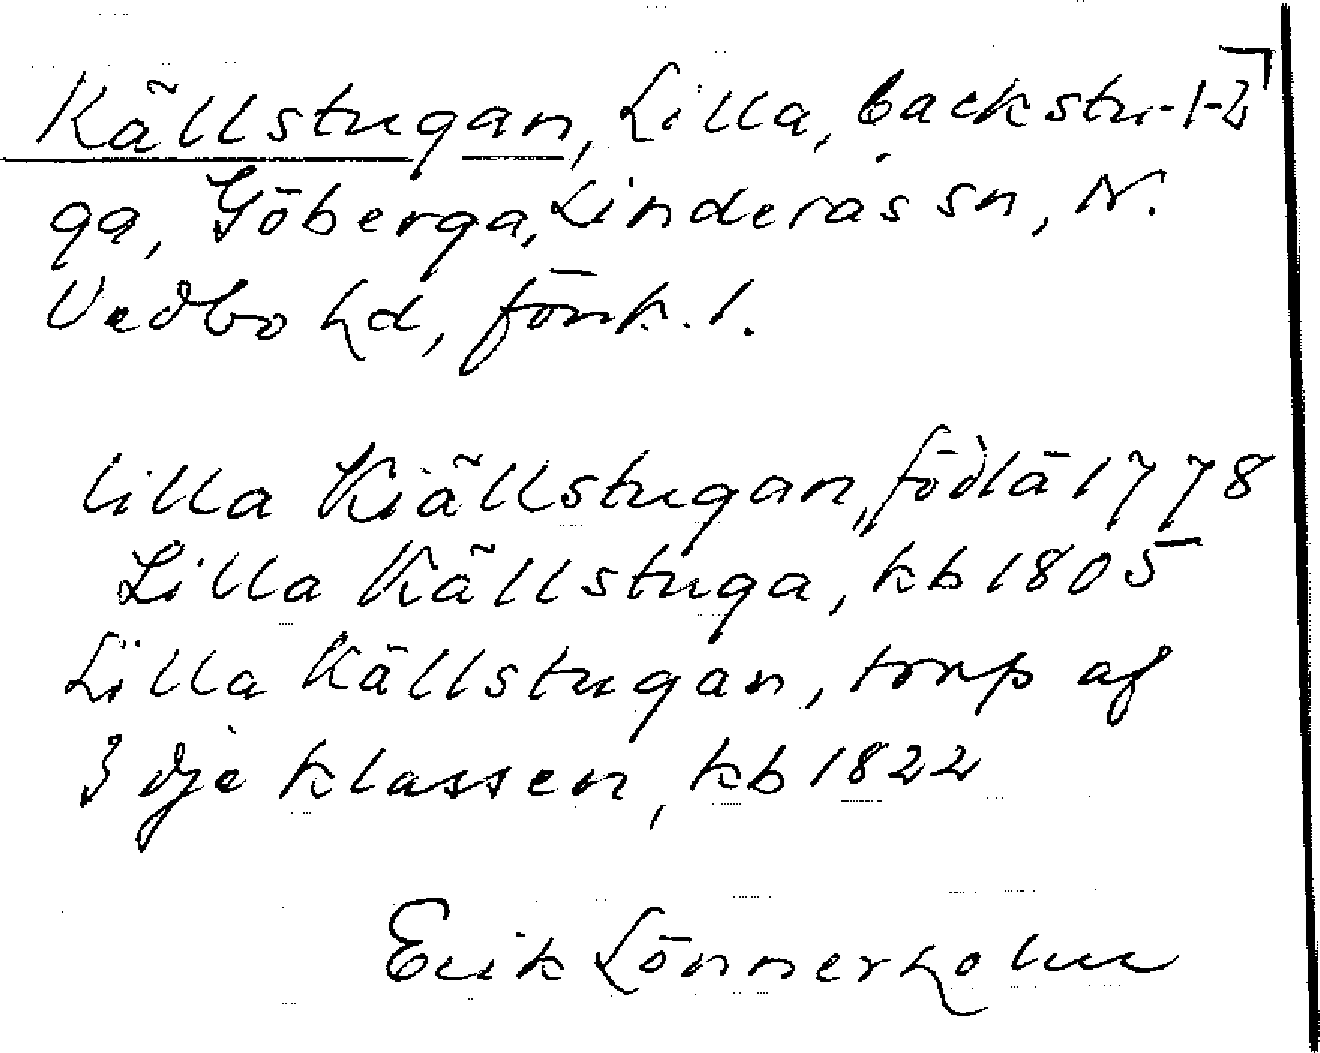 Källstugan, Lilla, backstu-1-2
ga, Göberga, Linderås sn, N.
Vedbo hd, förk. 1.
lilla Kiällstugan, födlä 1778
Lilla Källstuga, kb 1805
Lilla Källstugan, torp af
3dje klassen, kb 1822
Erik Lönnerholm